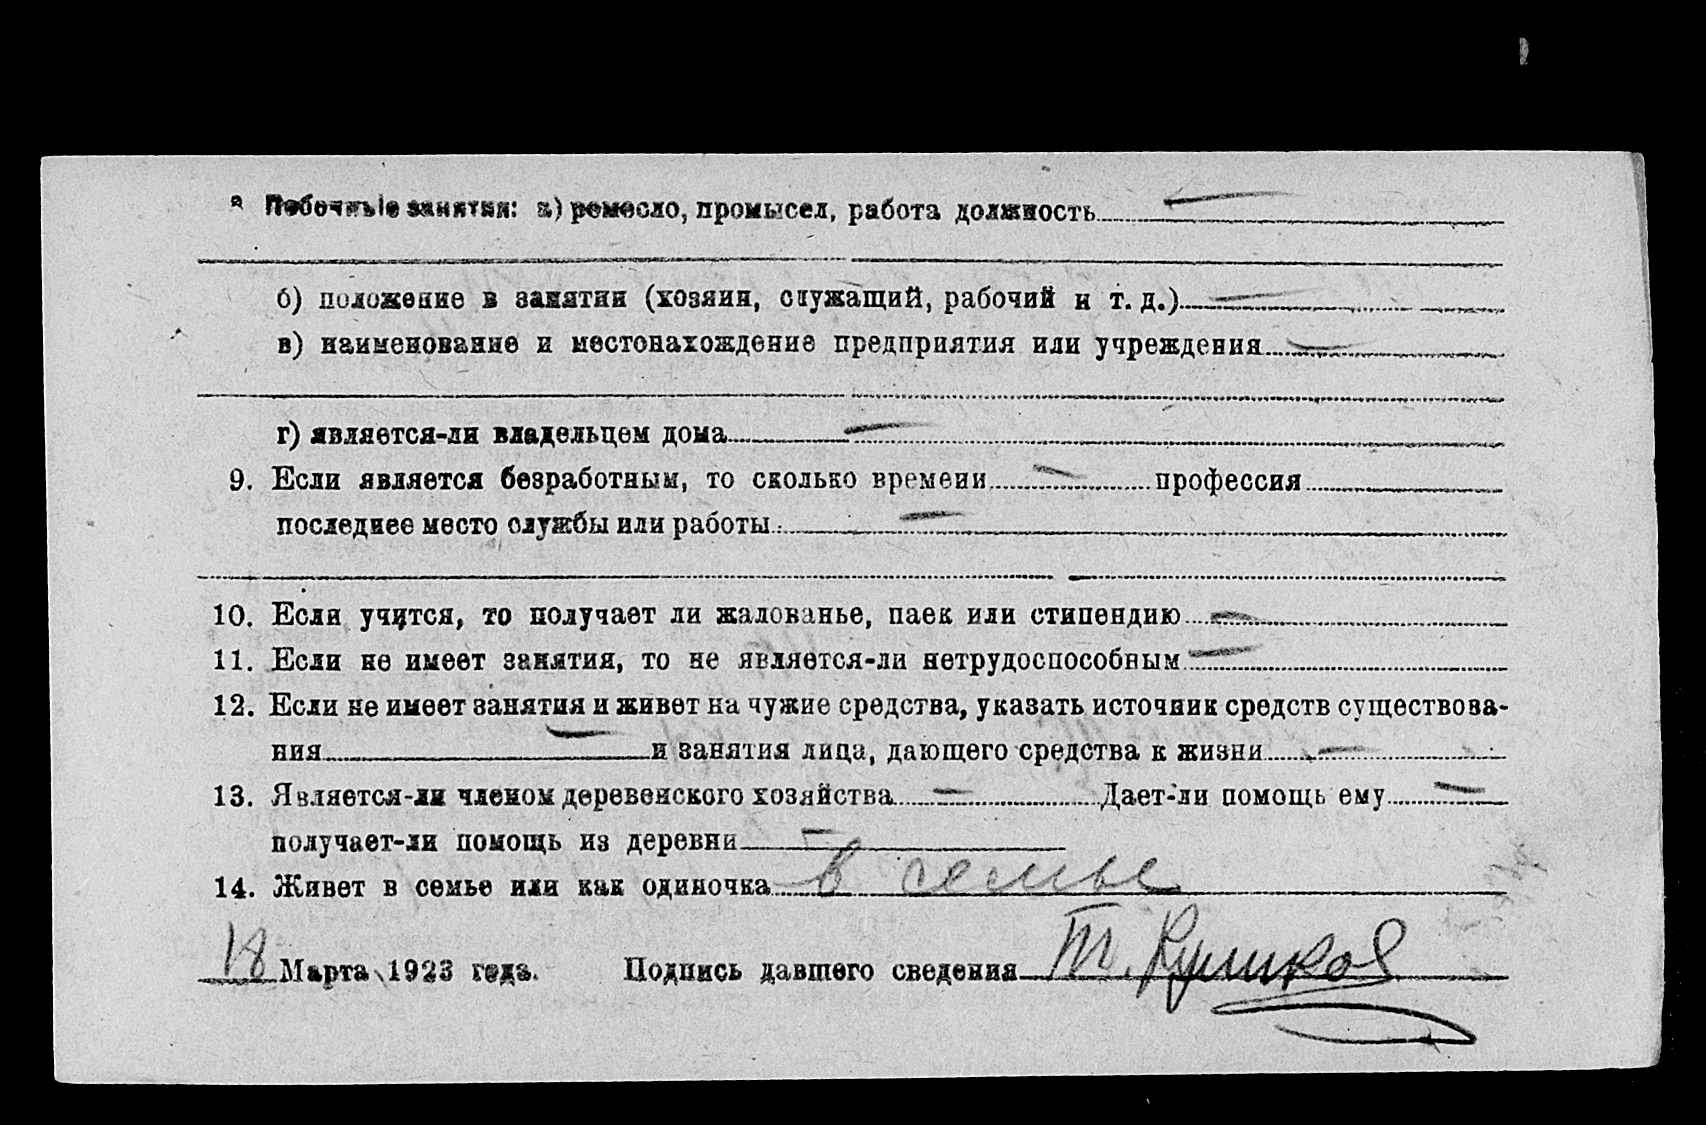 8 Побочные занятия: а) ремесло, промысел, работа должность —
б) положение в занятии (хозяин, служащий, рабочий и т. д.) —
в) наименование и местонахождение предприятия или учреждения —
г) является-ли владельцем дома —
9. Если является безработным, то сколько времени — профессия
последнее место службы или работы —
10. Если учится, то получает ли жалованье, паек или стипендию —
11. Если не имеет занятия, то не является-ли нетрудоспособным —
12. Если не имеет занятия и живет на чужие средства, указать источник средств существова-
ния — и занятия лица, дающего средства к жизни —
13. Является-ли членом деревенского хозяйства — Дает-ли помощь ему —
получает-ли помощь из деревни —
14. Живет в семье или как одиночка в семье
18 Марта 1923 года. Подпись давшего сведения Т.